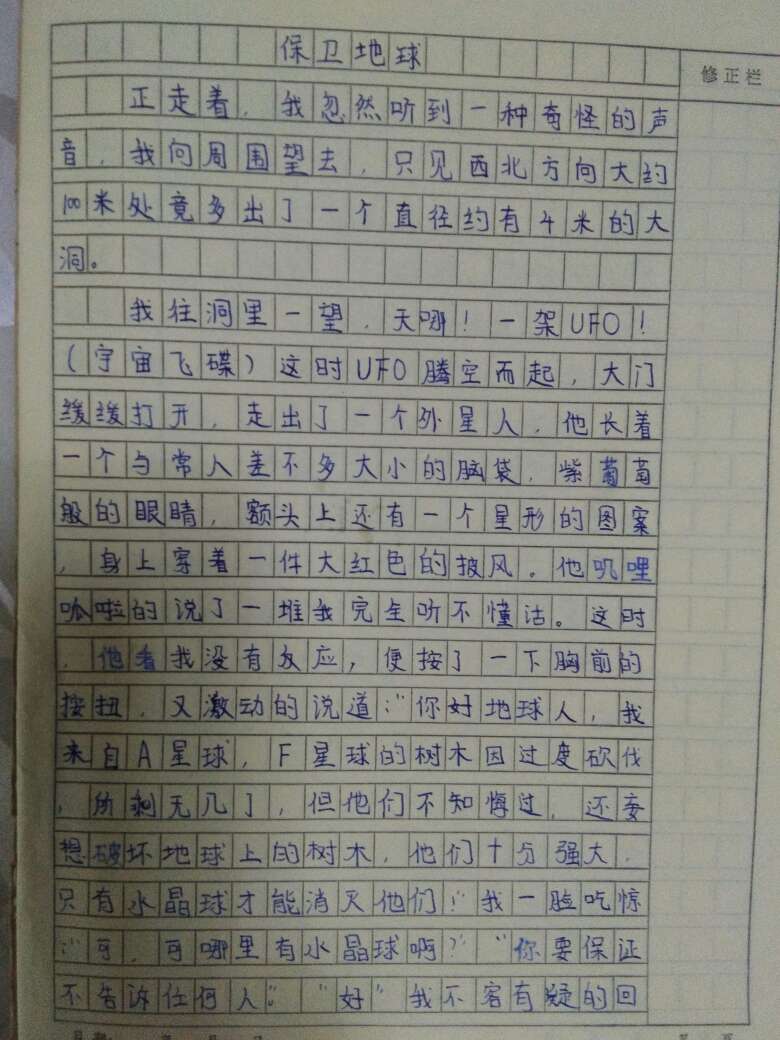 保卫地球
修正栏
正走着，我忽然听到一种奇怪的声
音，我向周围望去，只见西北方向大约
100米处竟多出了一个直径约有4米的大
洞。
我往洞里一望，天哪！一架UFO！
（宇宙飞碟）这时UFO腾空而起，大门
缓缓打开，走出了一个外星人，他长着
一个与常人差不多大小的脑袋，紫葡萄
般的眼睛，额头上还有一个星形的图案
，身上穿着一件大红色的披风。他叽哩
呱啦的说了一堆我完全听不懂话。这时
，他看我没有反应，便按了一下胸前的
按扭，又激动的说道：“你好地球人，我
来自A星球，F星球的树木因过度砍伐
，所剩无几了，但他们不知悔过，还妄
想破坏地球上的树木，他们十分强大，
只有水晶球才能消灭他们！”我一脸吃惊
：“可，可哪里有水晶球啊？”“你要保证
不告诉任何人。”“好”我不容有疑的回